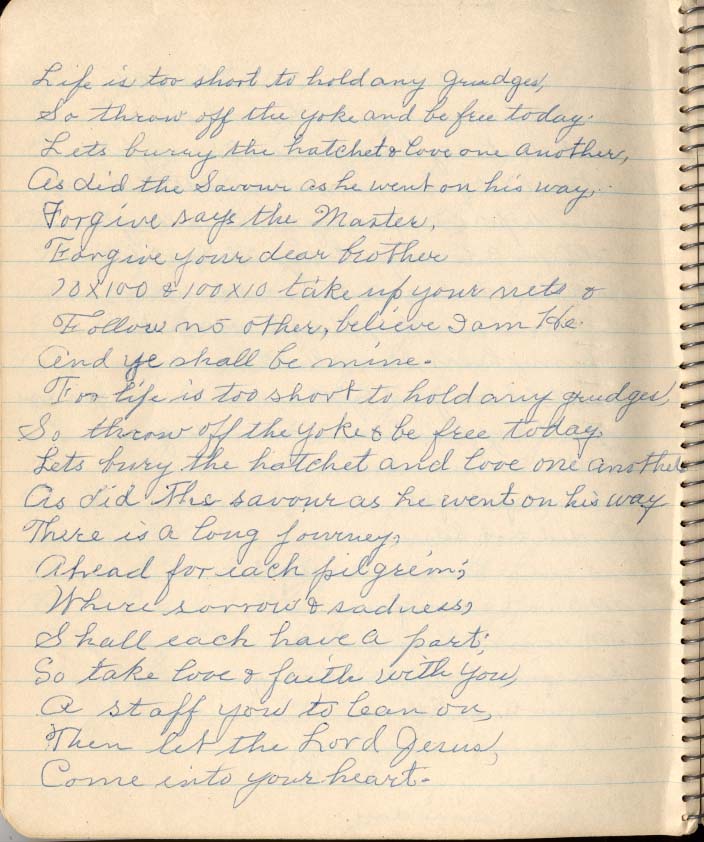 Life is too short to hold any grudges,
So throw off the yoke and be free today.
Lets burry the hatchet & love one another,
As did the Savour as he went on his way,
Forgive says the Master,
Forgive your dear brother
10x100 & 100x10 take up your nets &
Follow no other, believe I am He.
And ye shall be mine.
For life is too short to hold any grudges,
So throw off the yoke & be free today.
Lets bury the hatchet and love one another
As did the savour as he went on his way
There is a long journey,
Ahead for each pilgrim;
Where sorrow & sadness,
Shall each have a part;
So take love & faith with you,
A staff you to lean on,
Then let the Lord Jesus,
Come into your heart.